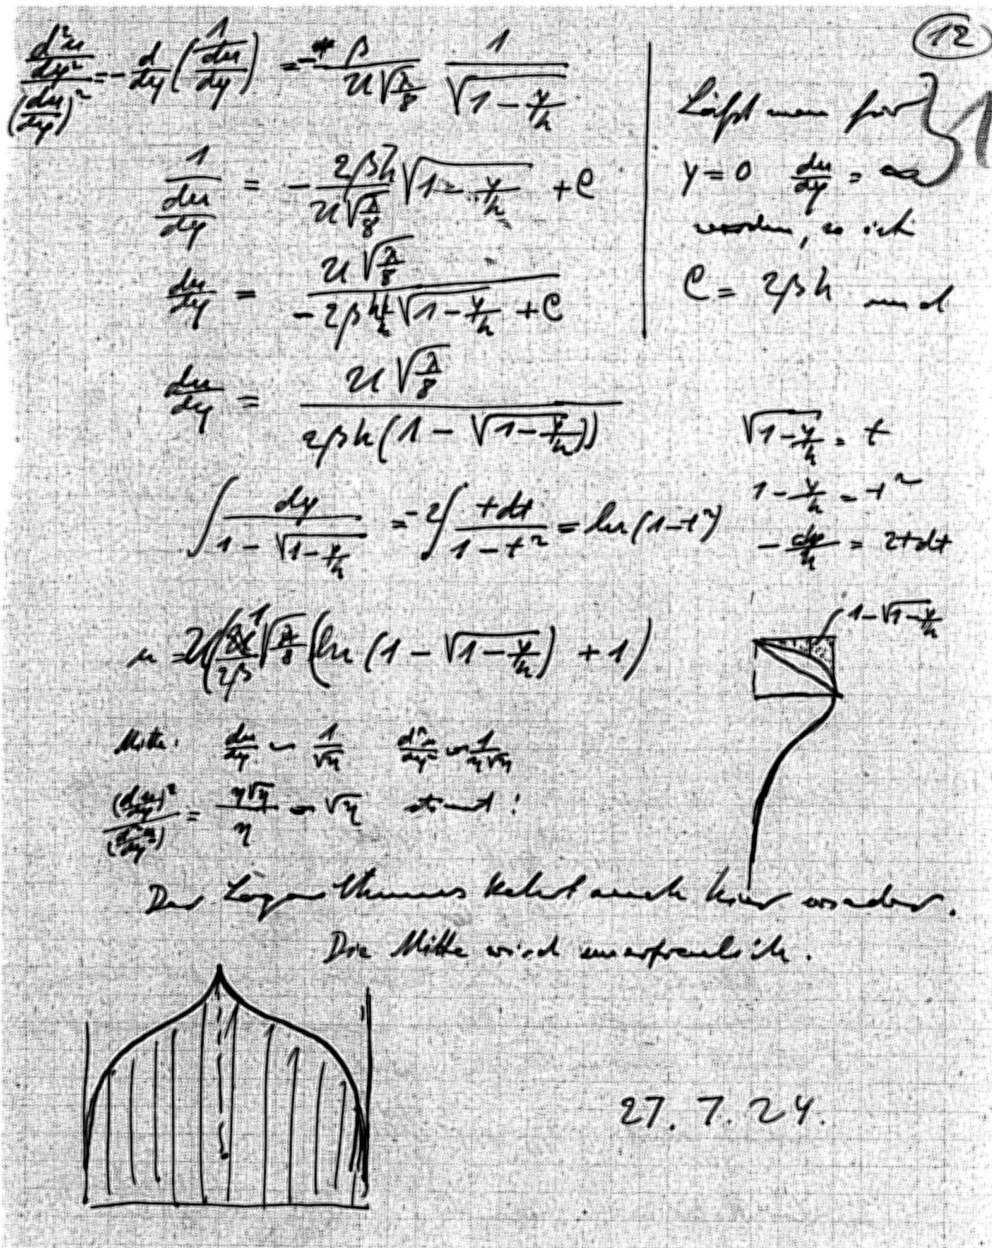 12
1
d²u/dy² / (du/dy)² = - d/dy (1 / (du/dy)) = - β / (U √(λ/8)) · 1 / √(1 - y/h)
1 / (du/dy) = - 2βh / (U √(λ/8)) √(1 - y/h) + C
du/dy = U √(λ/8) / (- 2βh √(1 - y/h) + C)
du/dy = U √(λ/8) / (2βh (1 - √(1 - y/h)))
Läßt man für
y = 0 du/dy = ∞
werden, so ist
C = 2βh und
√(1 - y/h) = t
1 - y/h = t²
- dy/h = 2t dt
∫ dy / (1 - √(1 - y/h)) = -2 ∫ t dt / (1 - t²) = ln (1 - t²)
1 - √(1 - y/h)
√(λ/8) (ln (1 - √(1 - y/h)) + 1)
Mitte: du/dy ~ 1/√η d²u/dy² ~ 1/(η√η)
(du/dy)² / (d²u/dy²) = η√η / η = √η stimmt!
Der Logarithmus kehrt auch hier wieder.
Die Mitte wird unerfreulich.
27. 7. 24.